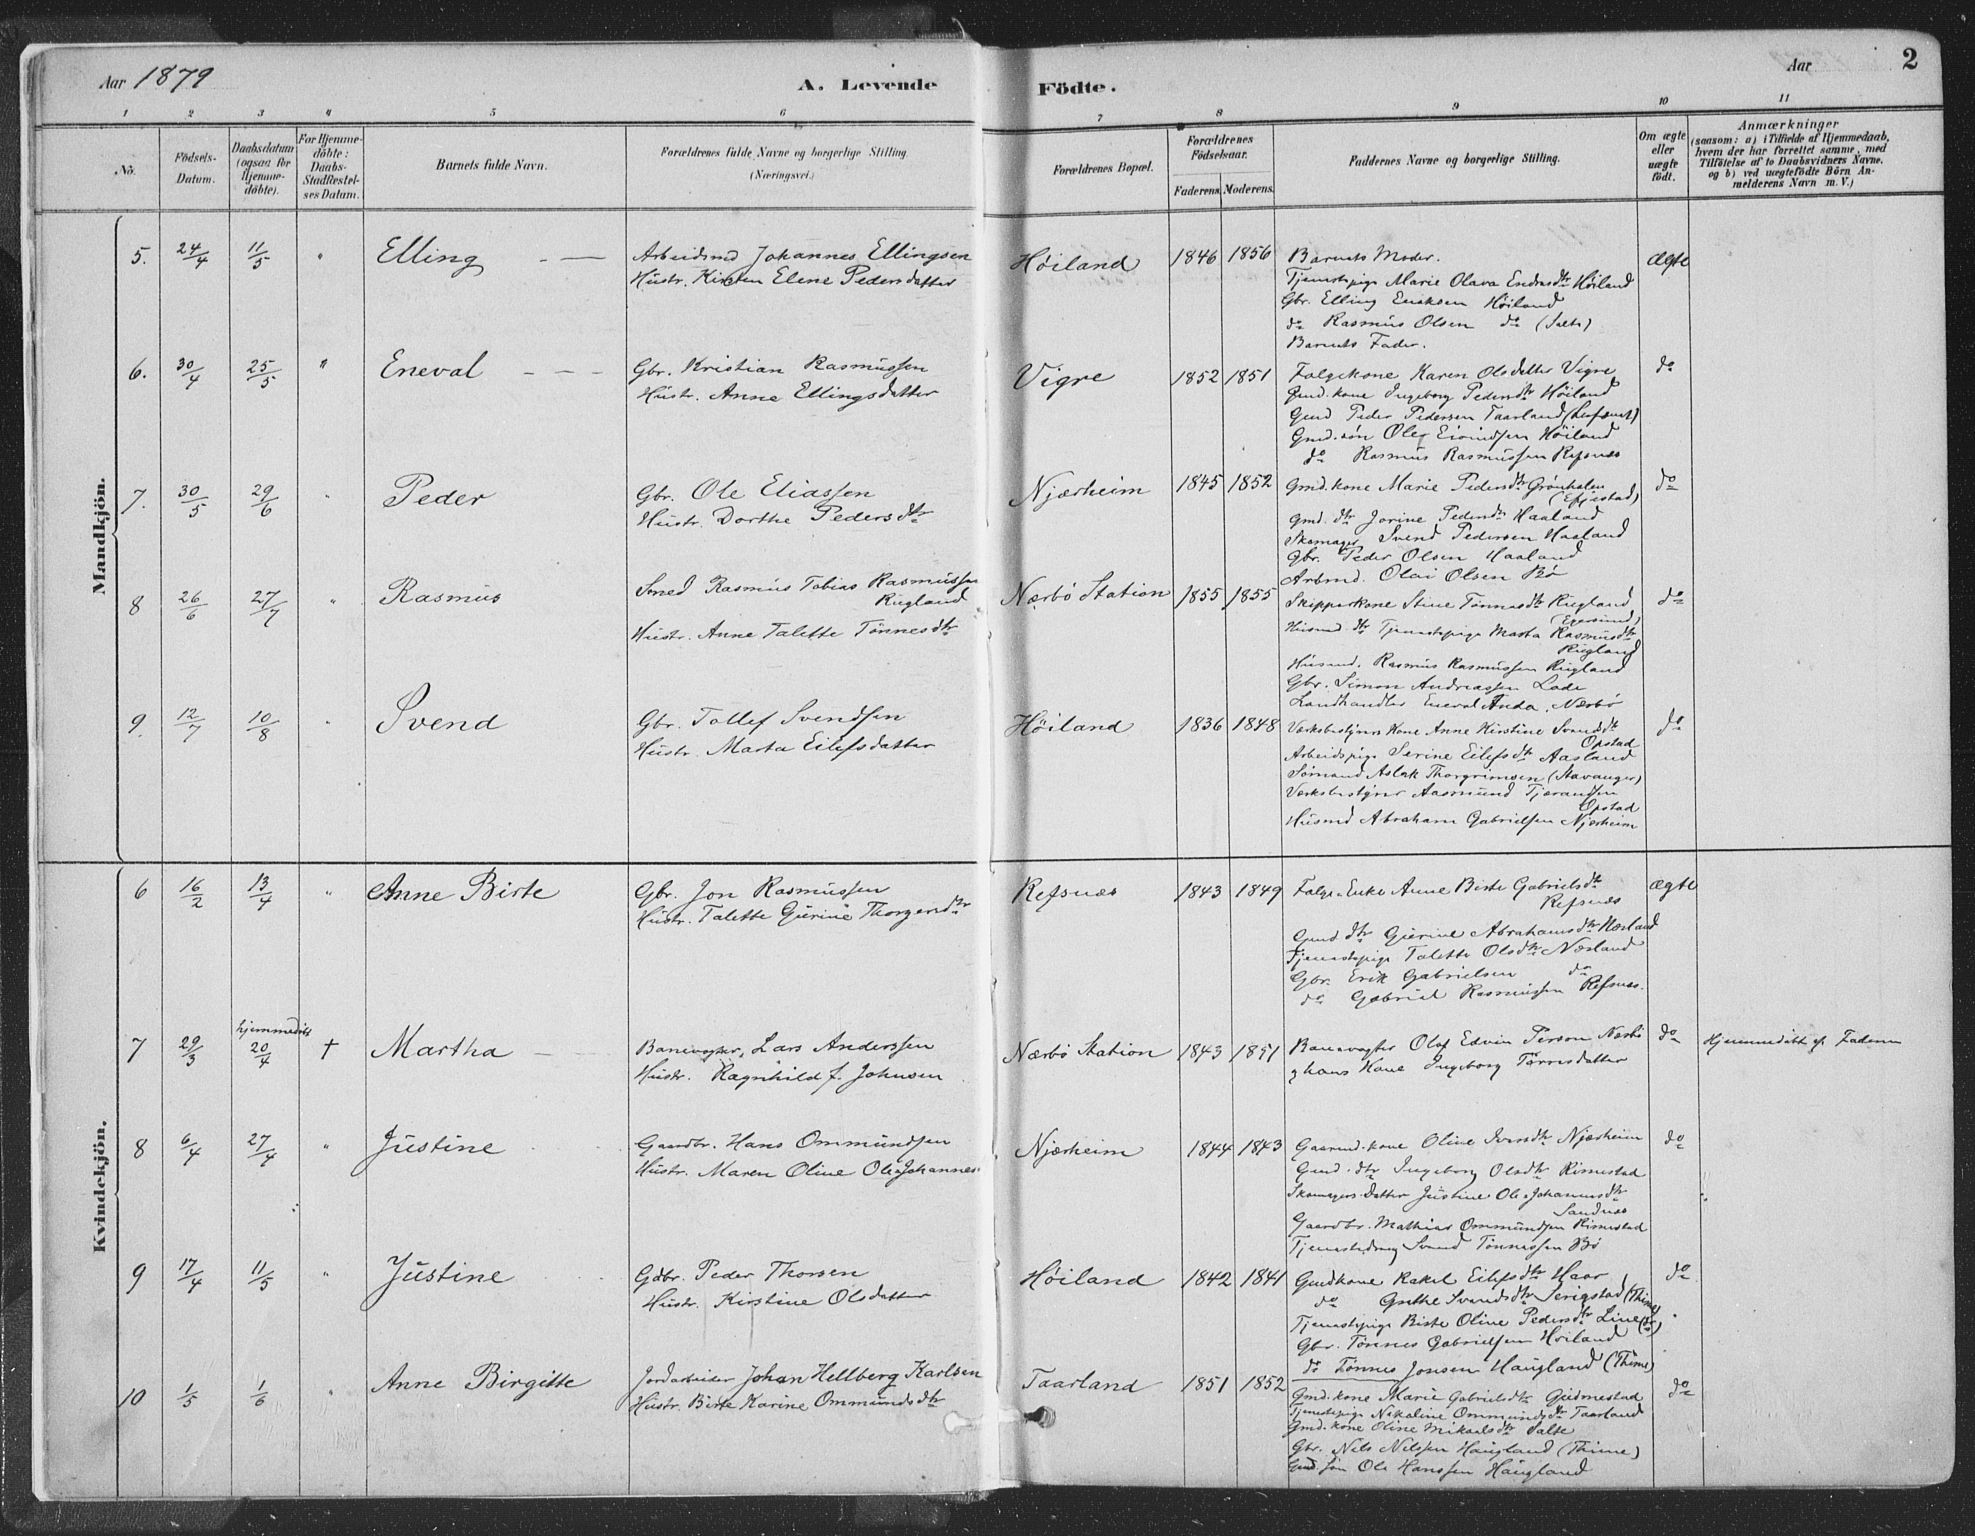 Aar 1879 A. Levende Födte. Aar 2
1 2 3 4 5 6 7 8 9 10 11
No.
Födsels-Datum.
Daabsdatum (ogsaa for Hjemmedöbte).
For Hjemmedöbte: Daabs-Stadfestelses Datum.
Barnets fulde Navn.
Forældrenes fulde Navne og borgerlige Stilling
(Næringsvei.)
Forældrenes Bopæl.
Forældrenes Födselsaar.
Faderens. Moderens.
Faddernes Navne og borgerlige Stilling.
Om ægte eller uægte födt.
Anmærkninger
(saasom: a) i Tilfælde af Hjemmedaab, hvem der har forrettet samme, med Tilföielse af to Daabsvidners Navne, og b) ved uægtefödte Börn Anmelderens Navn m. V.)
Mandkjön.
5. 24/4 11/5 " Elling
Arbeidsmd Johannes Ellingsen
Hustr. Kirsten Elene Pedersdatter
Höiland 1846 1856
Barnets Moder.
Tjenestepige Marie Olava Endresdtr Höiland
Gbr. Elling Eriksen Höiland
do Rasmus Olsen do (Salte)
Barnets Fader.
ægte
6. 30/4 25/5 " Eneval
Gbr. Kristian Rasmussen
Hustr. Anne Ellingsdatter
Vigre 1852 1851
Folgekone Karen Olsdatter Vigre
Gmd.kone Ingeborg Pedersdtr Höiland
Gmd Peder Pedersen Taarland
Gmd.sön Ole Eivindsen Höiland
do Rasmus Rasmussen Refsnes
do
7. 30/5 29/6 " Peder
Gbr. Ole Eliassen
Hustr. Dorthe Pedersdtr
Njærheim 1845 1852
Gmd.kone Marie Pedersdtr Grönhalen
Gmd. dtr Jorine Pedersdtr Haaland
Skomager Svend Pedersen Haaland
Gbr. Peder Olsen Haaland
Arbmd. Olai Olsen Bö
do
8 26/6 27/7 " Rasmus
Smed Rasmus Tobias Rasmussen
Rugland
Hustr. Anne Talette Tönnesdtr
Nærbö Station 1855 1855
Skipperkone Stine Tönnesdtr Rugland
(Egersund)
Husmd dtr Tjenestepige Marta Rasmusdtr
Rugland
Husmd. Rasmus Rasmussen Rugland
Gbr. Simon Andreassen Lode
Landhandler Eneval Anda, Nærbö
do
9. 12/7 10/8 " Svend
Gbr. Tollef Svendsen
Hustr. Marta Eilefsdatter
Höiland 1836 1848
Verksbestyrers Kone Anne Kirstine Svendsdtr
Opstad
Arbeidspige Serine Eilefsdtr Aasland
Sömand Aslak Thorgrimsen (Stavanger)
Verksbestyrer Aasmund Tjerandsen
Opstad
Husmd Abraham Gabrielsen Njærheim
do
Kvindekjön.
6 16/2 13/4 " Anne Birte
Gbr. Jon Rasmussen
Hustr. Talette Gurine Thorgersdtr
Refsnæs 1843 1849
Folge-Enke Anne Birte Gabrielsdtr
Refsnæs
Gmd dtr Gurine Abrahamsdtr Næsland
Tjenestepige Talette Olsdtr Næsland
Gbr. Erik Gabrielsen do
do Gabriel Rasmussen Refsnæs.
ægte
7 29/3 hjemmedöbt 20/4 † Martha
Banevogter, Lars Anderssen
Hustr. Ragnhild f. Johnsen
Nærbö Station 1843 1851
Banevogter Olof Edvin Person Nærbö
og hans Kone Ingeborg Tönnesdatter
do
Hjemmedöbt af Faderen
8 6/4 27/4 " Justine
Gaardbr. Hans Ommundsen
Hustr. Maren Oline Ole Johannes
Njærheim 1844 1843
Gaarmd.kone Oline Iversdtr Njærheim
Gmd. dtr Ingeborg Olsdtr Rimestad
Skomagers Datter Justine Ole Johannesdtr
Sandnæs
Gaardbr. Mathias Ommundsen Rimestad
Tjenestedreng Svend Tönnessen Bö
do
9 17/4 11/5 " Justine
Gdbr. Peder Thorsen
Hustr. Kirstine Olsdatter
Höiland 1842 1841
Gmdkone Rakel Eilefsdtr Haar
do Grethe Svendsdtr Serigstad (Thime)
Tjenestepige Birte Oline Pedersdtr Line (do)
Gbr. Tönnes Gabrielsen Höiland
do Tönnes Jonsen Haugland (Thime)
do
10 1/5 1/6 " Anne Birgitte
Jordarbeider Johan Hellberg Karlsen
Hustr. Birte Karine Ommundsdtr
Taarland 1851 1852
Gmd.kone Marie Gabrielsdtr Gudmestad
Tjenestepige Nikoline Ommundsdtr Taarland
Gmd.kone Oline Mikaelsdtr Salte
Gbr. Nils Nilssen Haugland (Thime)
Gmd sön Ole Hanssen Haugland
do